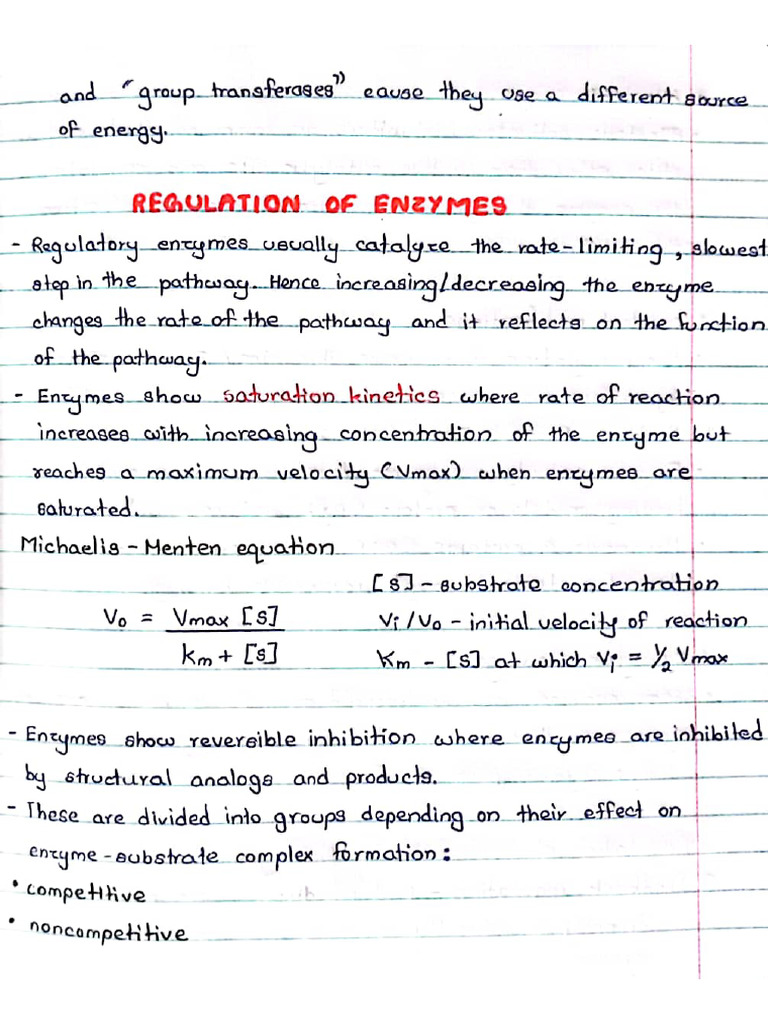 and "group transferases" cause they use a different source
of energy.
REGULATION OF ENZYMES
- Regulatory enzymes usually catalyze the rate-limiting, slowest
step in the pathway. Hence increasing/decreasing the enzyme
changes the rate of the pathway and it reflects on the function
of the pathway.
- Enzymes show saturation kinetics where rate of reaction
increases with increasing concentration of the enzyme but
reaches a maximum velocity (Vmax) when enzymes are
saturated.
Michaelis - Menten equation
[S] - substrate concentration
V₀ = Vmax [S] / Km + [S]
Vi/V₀ - initial velocity of reaction
Km - [S] at which Vi = 1/2 Vmax
- Enzymes show reversible inhibition where enzymes are inhibited
by structural analogs and products.
- These are divided into groups depending on their effect on
enzyme-substrate complex formation:
• competitive
• noncompetitive